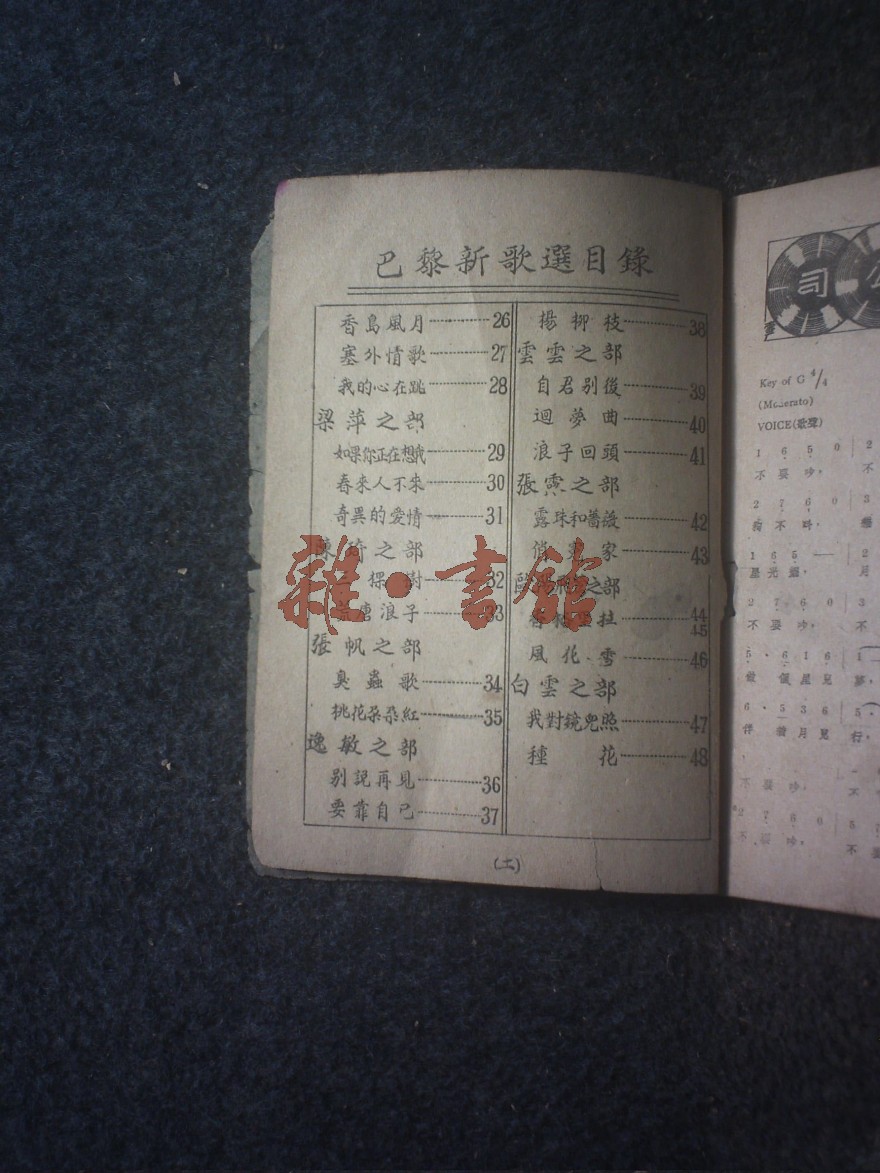 巴黎新歌選目錄
香島風月 26
塞外情歌 27
我的心在跳 28
梁萍之部
如果你正在想我 29
春來人不來 30
奇異的愛情 31
陳琦之部
棵樹 32
浪子 33
張帆之部
臭蟲歌 34
桃花朶朶紅 35
逸敏之部
別說再見 36
要靠自己 37
楊柳枝 38
雲雲之部
自君別後 39
迴夢曲 40
浪子回頭 41
張露之部
露珠和薔薇 42
家 43
之部
44
45
風花雪 46
白雲之部
我對鏡兒照 47
種花 48
(土)
雜·書館
司公
Key of G 4/4
(Moderato)
VOICE(歌聲)
1 6 5 0 2
不要吵, 不
2 7 6 0 3
狗不叫,
1 6 5 — 2
星光 月
2 7 6 0 3
不要吵, 不
5 · 6 1 6 1
做 個 夢,
6 · 5 3 6 5
伴 着月兒 行,
不要吵,
2 7 6 0 5
不要吵, 不